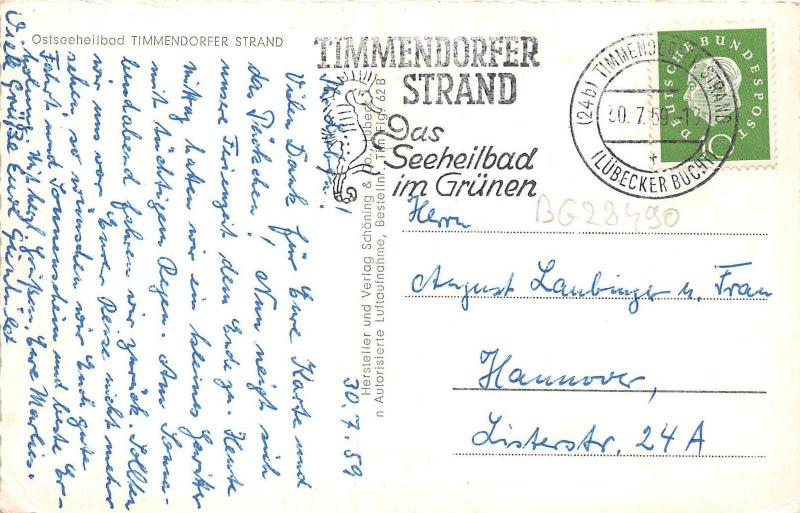 Ostseeheilbad TIMMENDORFER STRAND
TIMMENDORFER
STRAND
Das
Seeheilbad
im Grünen
(24b) TIMMENDORFER STRAND
30.7.59-12
(LÜBECKER BUCHT)
DEUTSCHE BUNDESPOST
10
BG28490
30.7.59
Ihr Lieben!
Vielen Dank für Eure Karte und
das Päckchen! Nun neigt sich
unsere Freizeit dem Ende zu. Heute
mittag hatten wir ein kleines Gewitter
mit tüchtigem Regen. Am Sonn-
abendabend fahren wir zurück. Sollten
wir uns vor Eurer Reise nicht mehr
sehen, so wünschen wir Euch gute
Fahrt und Sonnenschein und beste Er-
holung. Mit herzl. Grüßen Eure
Viele Grüße Eure
Hersteller und Verlag Schöning & Co., Lübeck
n Autorisierte Luftaufnahme, Bestellnr. Tim Flg. 62 B
Herrn
August Laubinger u. Frau
Hannover,
Listerstr. 24 A